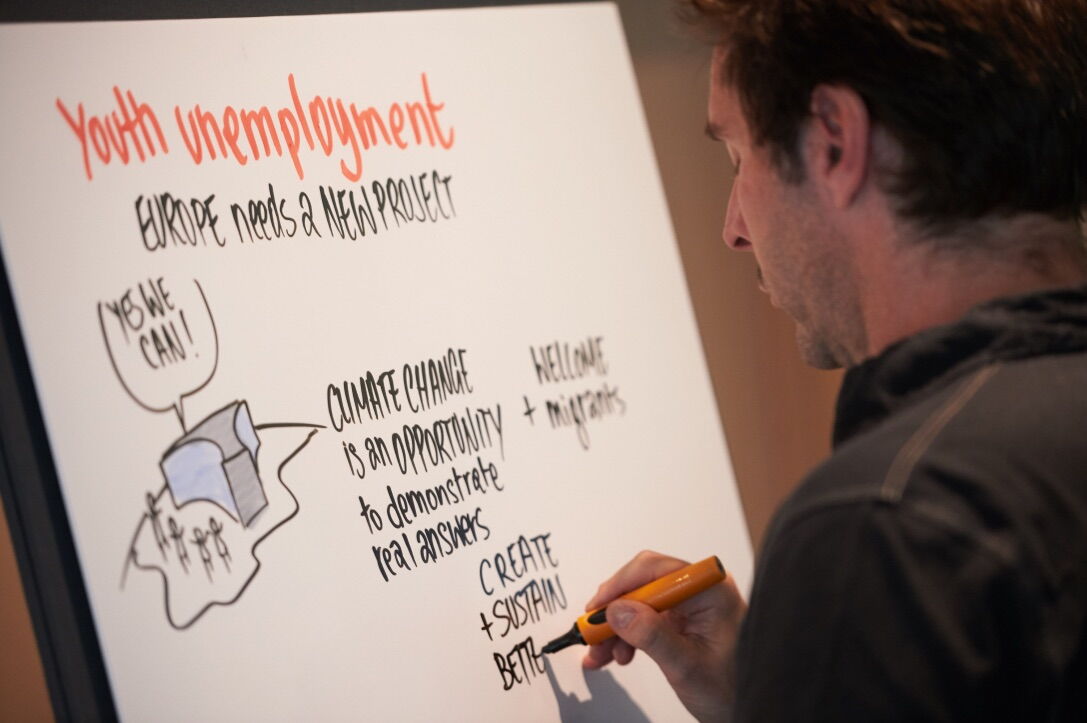 Youth unemployment
EUROPE needs a NEW PROJECT
YES WE
CAN!
CLIMATE CHANGE
is an OPPORTUNITY
to demonstrate
real answers
WELCOME
+ migrants
CREATE
+ SUSTAIN
BETTE